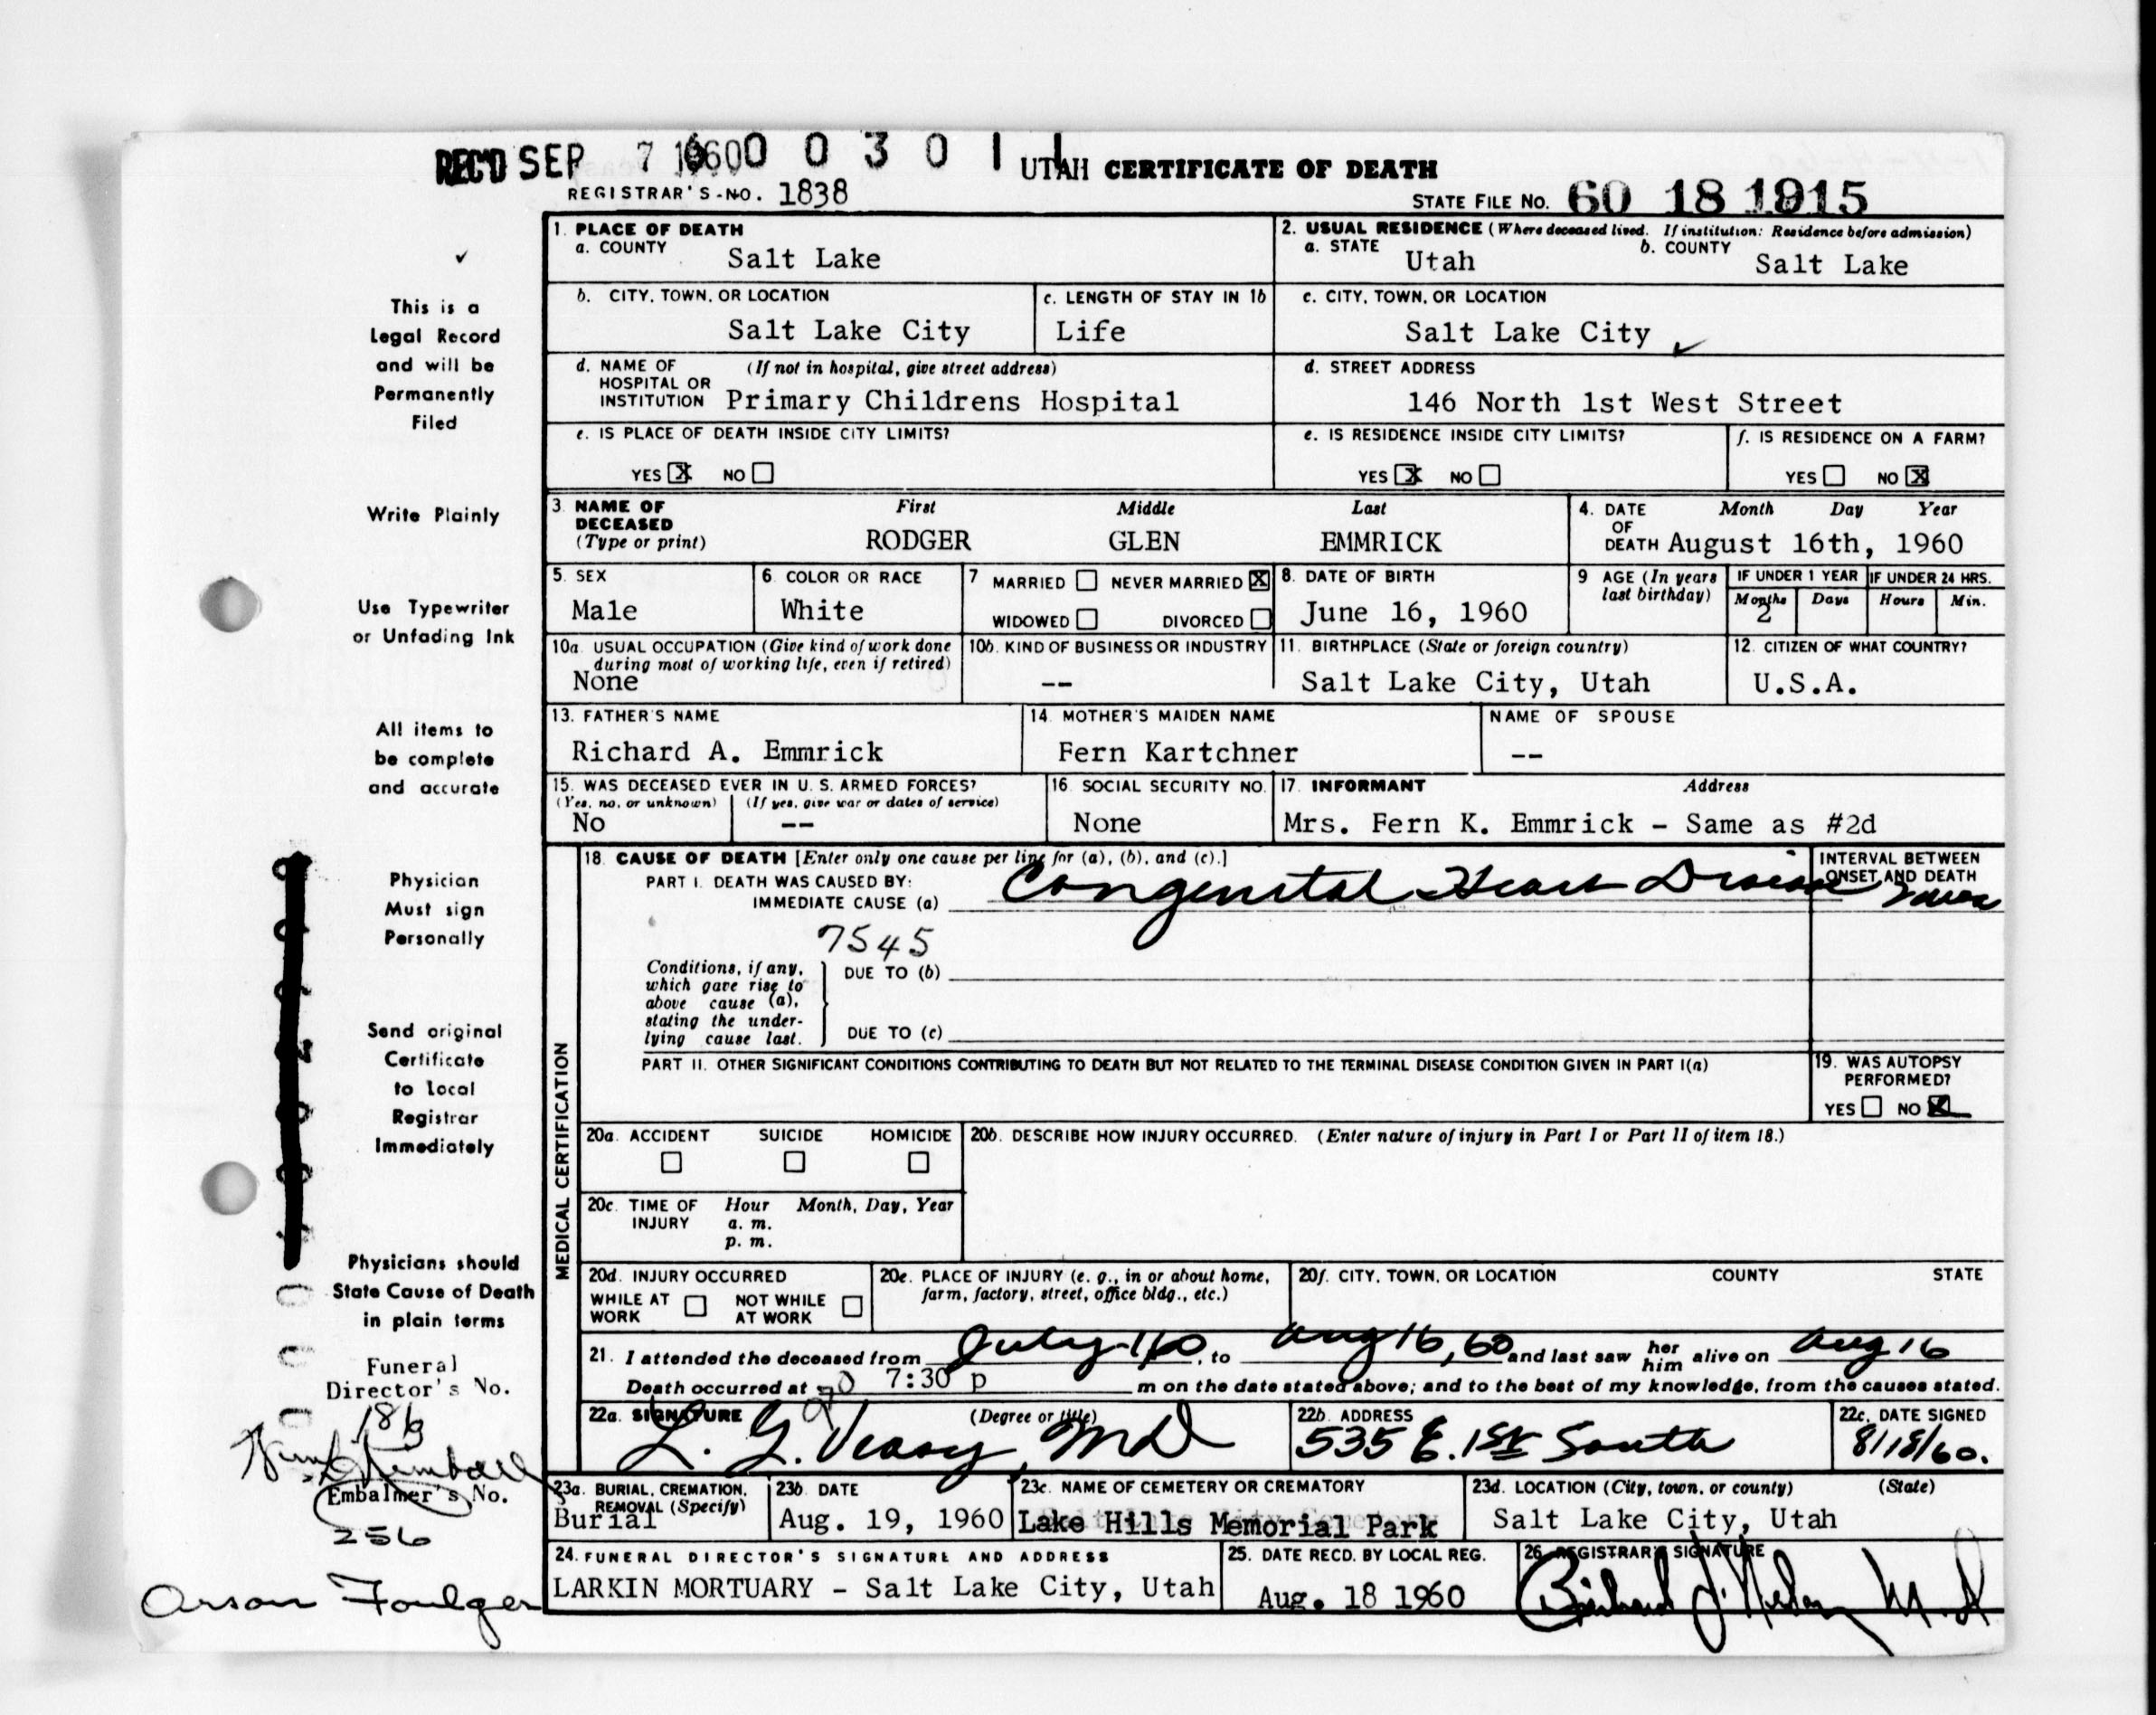 REC'D SEP 7 1960 0 0 3 0 1 1 UTAH CERTIFICATE OF DEATH
REGISTRAR'S-NO. 1838
STATE FILE NO. 60 18 1915
1. PLACE OF DEATH
a. COUNTY Salt Lake
2. USUAL RESIDENCE (Where deceased lived. If institution: Residence before admission)
a. STATE Utah b. COUNTY Salt Lake
b. CITY, TOWN, OR LOCATION Salt Lake City
c. LENGTH OF STAY IN 1b Life
c. CITY, TOWN, OR LOCATION Salt Lake City
d. NAME OF HOSPITAL OR INSTITUTION (If not in hospital, give street address) Primary Childrens Hospital
d. STREET ADDRESS 146 North 1st West Street
e. IS PLACE OF DEATH INSIDE CITY LIMITS?
YES X NO
e. IS RESIDENCE INSIDE CITY LIMITS?
YES X NO
f. IS RESIDENCE ON A FARM?
YES NO X
3. NAME OF DECEASED (Type or print)
First Middle Last
RODGER GLEN EMMRICK
4. DATE OF DEATH Month Day Year
August 16th, 1960
5. SEX Male
6. COLOR OR RACE White
7 MARRIED NEVER MARRIED X
WIDOWED DIVORCED
8. DATE OF BIRTH June 16, 1960
9 AGE (In years last birthday)
IF UNDER 1 YEAR IF UNDER 24 HRS.
Months Days Hours Min.
2
10a USUAL OCCUPATION (Give kind of work done during most of working life, even if retired)
None
10b. KIND OF BUSINESS OR INDUSTRY
--
11. BIRTHPLACE (State or foreign country)
Salt Lake City, Utah
12. CITIZEN OF WHAT COUNTRY?
U.S.A.
13. FATHER'S NAME
Richard A. Emmrick
14. MOTHER'S MAIDEN NAME
Fern Kartchner
NAME OF SPOUSE
--
15. WAS DECEASED EVER IN U. S. ARMED FORCES?
(Yes, no, or unknown) (If yes, give war or dates of service)
No --
16. SOCIAL SECURITY NO.
None
17. INFORMANT Address
Mrs. Fern K. Emmrick - Same as #2d
MEDICAL CERTIFICATION
18. CAUSE OF DEATH [Enter only one cause per line for (a), (b), and (c).]
PART I. DEATH WAS CAUSED BY:
IMMEDIATE CAUSE (a) Congenital Heart Disease
INTERVAL BETWEEN ONSET AND DEATH
7545
Conditions, if any, which gave rise to above cause (a), stating the underlying cause last.
DUE TO (b)
DUE TO (c)
PART II. OTHER SIGNIFICANT CONDITIONS CONTRIBUTING TO DEATH BUT NOT RELATED TO THE TERMINAL DISEASE CONDITION GIVEN IN PART I(a)
19. WAS AUTOPSY PERFORMED?
YES NO X
20a. ACCIDENT SUICIDE HOMICIDE
20b. DESCRIBE HOW INJURY OCCURRED. (Enter nature of injury in Part I or Part II of item 18.)
20c. TIME OF INJURY Hour Month, Day, Year
a. m.
p. m.
20d. INJURY OCCURRED
WHILE AT WORK NOT WHILE AT WORK
20e. PLACE OF INJURY (e. g., in or about home, farm, factory, street, office bldg., etc.)
20f. CITY, TOWN, OR LOCATION COUNTY STATE
21. I attended the deceased from July 1/60, to Aug 16, 60 and last saw her him alive on Aug 16
Death occurred at 7:30 p m on the date stated above; and to the best of my knowledge, from the causes stated.
22a. SIGNATURE (Degree or title)
L. G. Veasy, MD
22b. ADDRESS
535 E. 1st South
22c. DATE SIGNED
8/18/60.
23a. BURIAL, CREMATION, REMOVAL (Specify)
Burial
23b. DATE
Aug. 19, 1960
23c. NAME OF CEMETERY OR CREMATORY
Lake Hills Memorial Park
23d. LOCATION (City, town, or county) (State)
Salt Lake City, Utah
24. FUNERAL DIRECTOR'S SIGNATURE AND ADDRESS
LARKIN MORTUARY - Salt Lake City, Utah
25. DATE RECD. BY LOCAL REG.
Aug. 18 1960
26. REGISTRAR'S SIGNATURE
This is a
Legal Record
and will be
Permanently
Filed
Write Plainly
Use Typewriter
or Unfading Ink
All items to
be complete
and accurate
Physician
Must sign
Personally
Send original
Certificate
to Local
Registrar
Immediately
Physicians should
State Cause of Death
in plain terms
Funeral
Director's No.
186
Kimball
Embalmer's No.
256
Orson Foulger